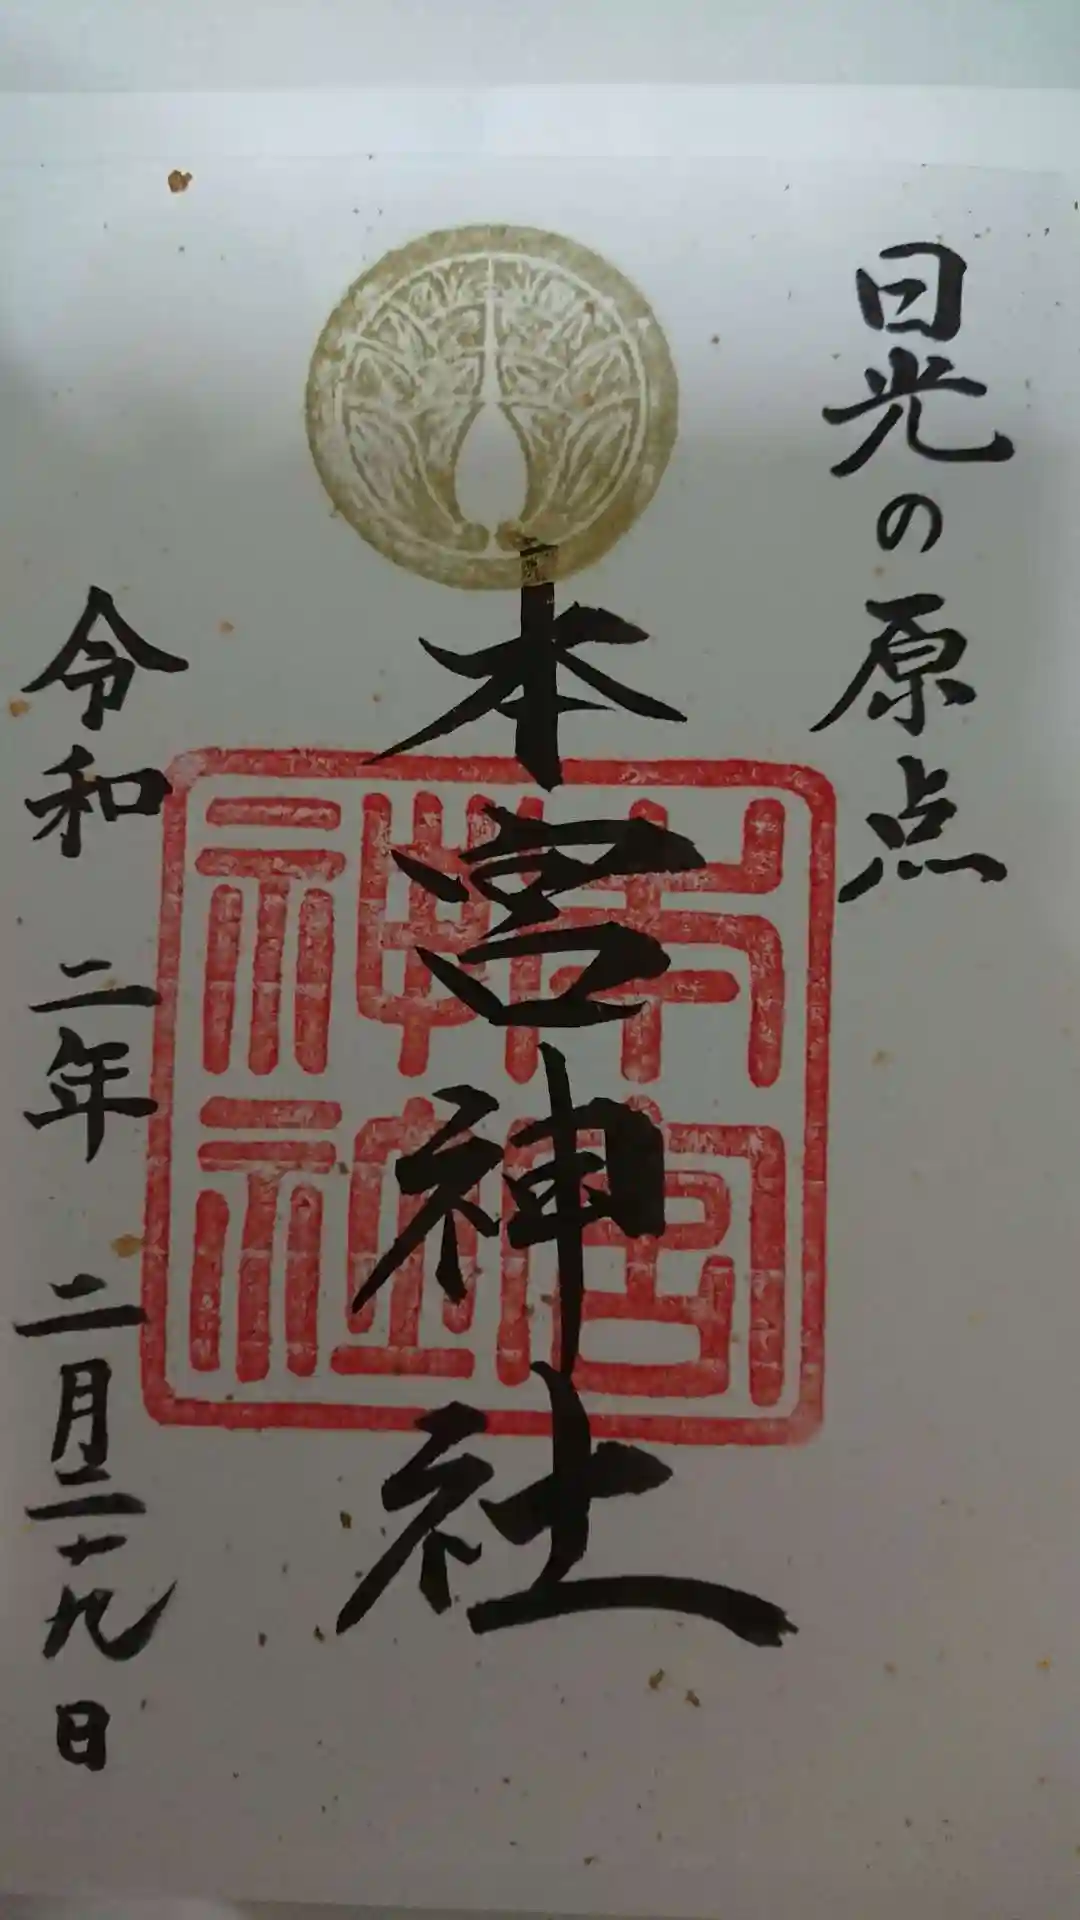 日光の原点
本宮神社
本宮
神社
令和二年二月二十九日